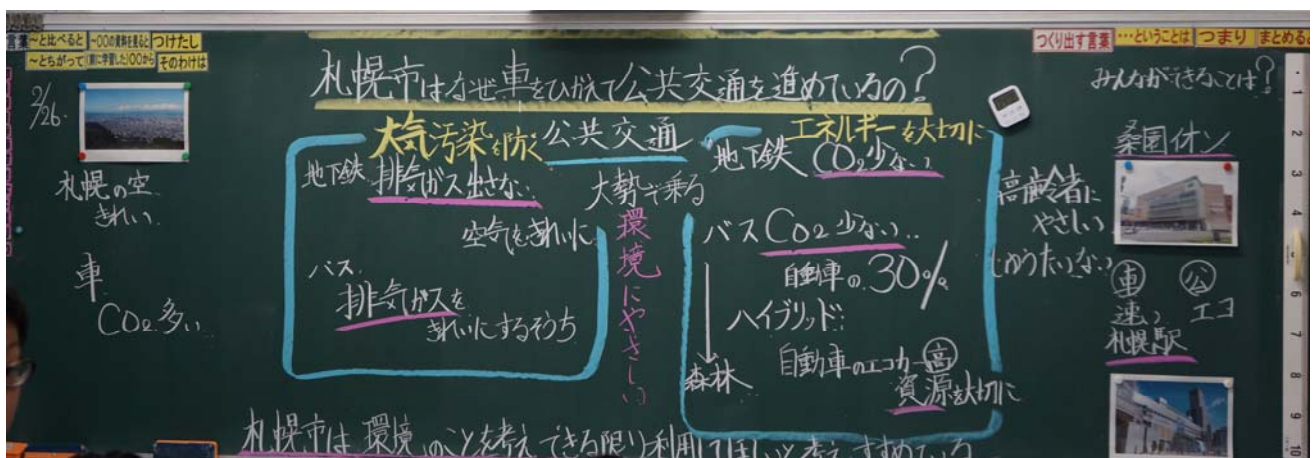 言葉
~と比べると
~〇〇の資料を見ると
つけたし
~とちがって
(前に学習した)〇〇から
そのわけは
つくり出す言葉
…ということは
つまり
まとめると
2/26.
札幌市はなぜ車をひかえて公共交通を進めているの?
札幌の空
きれい
車
CO2多い
大気汚染を防ぐ
地下鉄 排気ガス出さない
空気をきれいに
バス
排気ガスを
きれいにするそうち
公共交通
大勢で乗る
環境にやさしい
エネルギーを大切に
地下鉄 CO2少ない
バス CO2少ない
自動車の30%
ハイブリッド
自動車のエコカー高
森林
資源を大切に
高齢者に
やさしい
じゅうたいない
みんなができることは?
桑園イオン
車 公
速い エコ
札幌駅
札幌市は環境のことを考えできる限り利用してほしいと考えすすめている
1
2
3
4
5
6
7
8
9
10